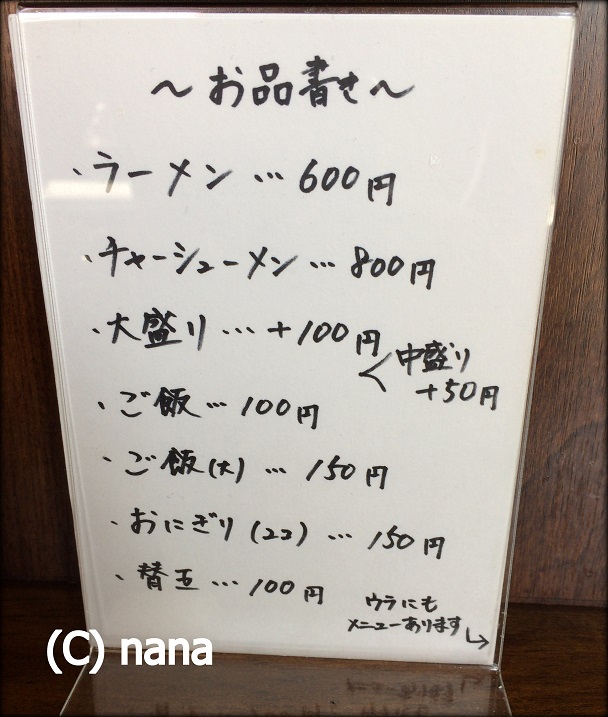 ～お品書き～
・ラーメン…600円
・チャーシューメン…800円
・大盛り…+100円
＜中盛り
+50円
・ご飯…100円
・ご飯(大)…150円
・おにぎり(2コ)…150円
・替玉…100円
ウラにも
メニューあります↳
(C) nana